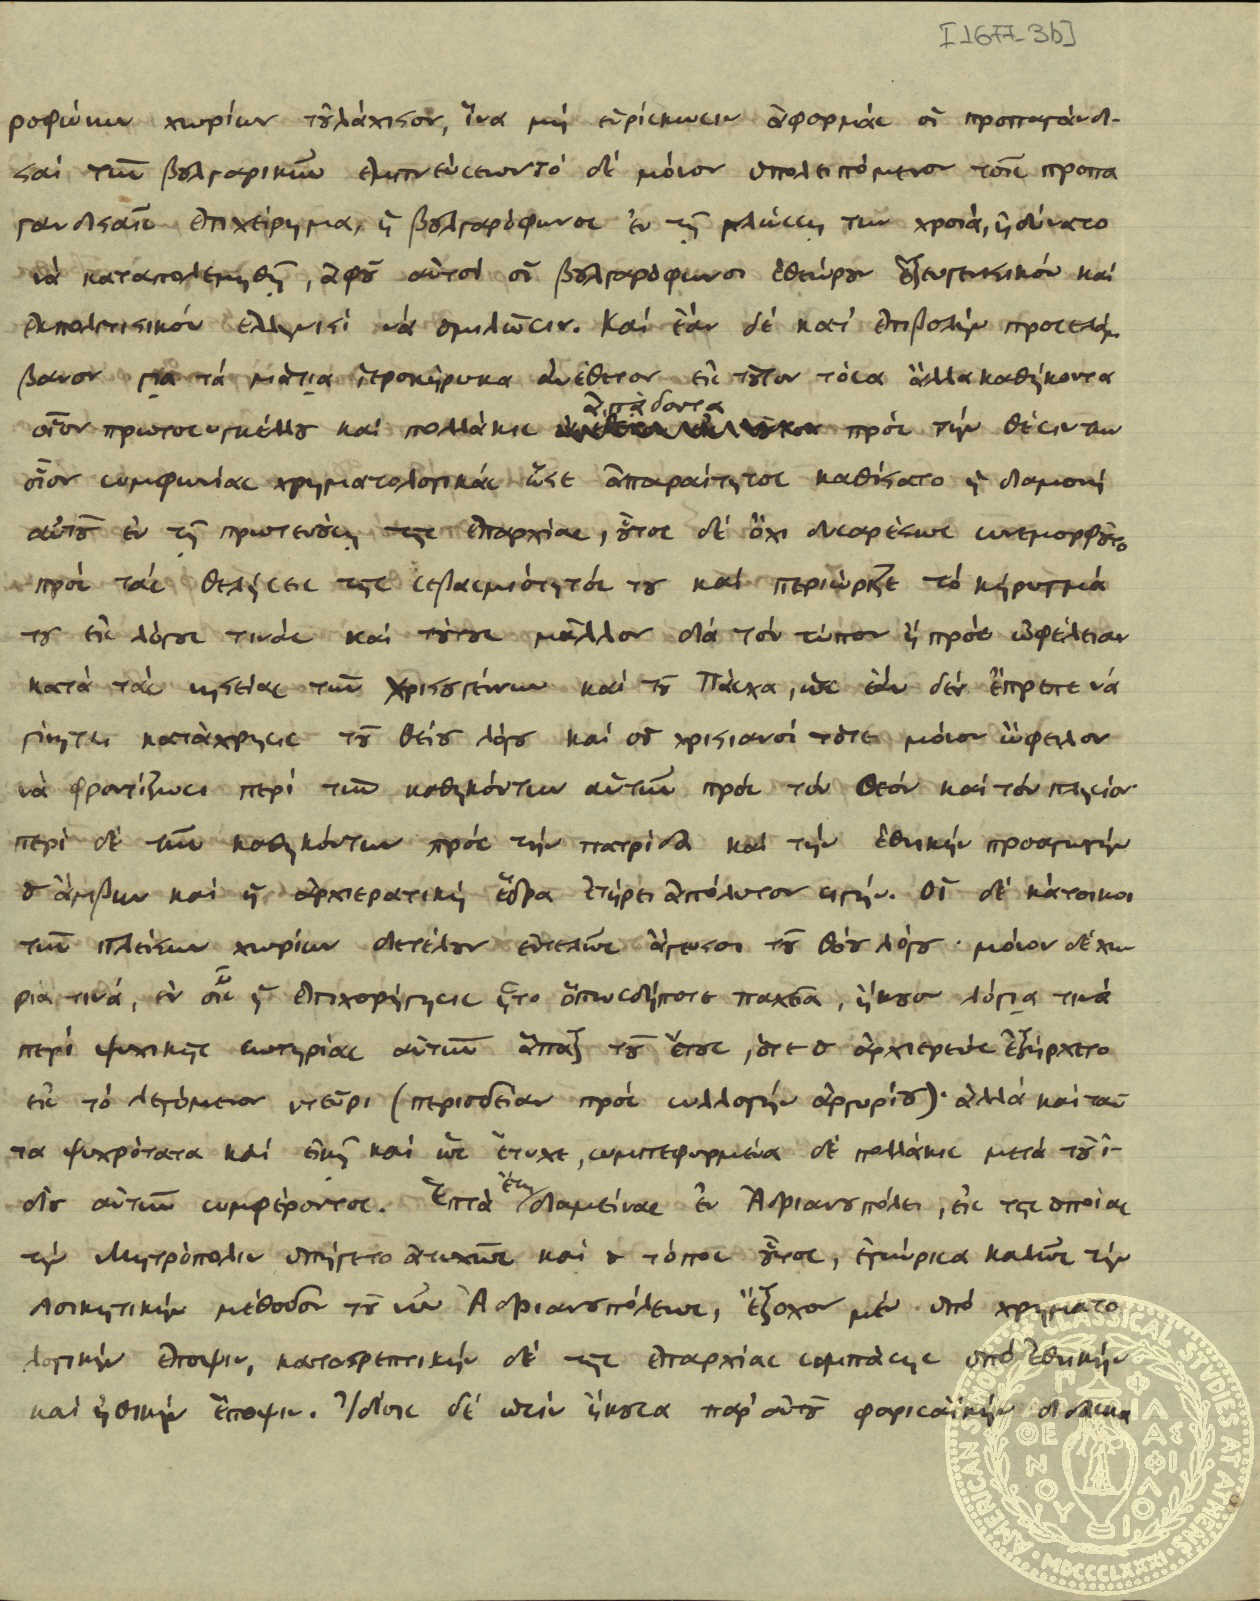 [1677-3b]
ροφώνων χωρίων τοὐλάχιστον, ἵνα μή εὑρίσκωσιν ἀφορμάς οἱ προπαγάνδι-
σταί τῶν βουλγαρικῶν ἐμπνεύσεων τό δέ μόνον ὑπολειπόμενον τοῖς προπα
γανδισταῖς ἐπιχείρημα, ἡ βουλγαρόφωνος ἐν τῇ γλώσσῃ των χροιά, ἠδύνατο
νά καταπολεμηθῇ, ἀφοῦ αὐτοί οἱ βουλγαρόφωνοι ἐθεώρουν ἐξευγενιστικόν καί
ἐκπολιτιστικόν ἑλληνιστί νά ὁμιλῶσιν. Καί ἐάν δέ κατ' ἐπιβολήν προσελάμ
βανον για τά μάτια ἱεροκήρυκα ἀνέθετον εἰς τοῦτον τόσα ἄλλα καθήκοντα
οἷον πρωτοσυγκέλλου καί πολλάκις ἀπᾴδοντα πρός τήν θέσιν των
οἷον συμφωνίας χρηματολογικάς ὥστε ἀπαραίτητος καθίστατο ἡ διαμονή
αὐτοῦ ἐν τῇ πρωτευούσῃ τῆς ἐπαρχίας, οὗτος δέ ὄχι δυσαρέστως συνεμορφοῦτο
πρός τάς θελήσεις τῆς σεβασμιότητός του καί περιώριζε τό κήρυγμά
του εἰς λόγους τινάς καί τούτους μᾶλλον διά τόν τύπον ἤ πρός ὠφέλειαν
κατά τάς νηστείας τῶν Χριστουγέννων καί τοῦ Πάσχα, ὡς ἐάν δέν ἔπρεπε νά
γίνηται κατάχρησις τοῦ θείου λόγου καί οἱ χριστιανοί τότε μόνον ὤφειλον
νά φροντίζωσι περί τῶν καθηκόντων αὐτῶν πρός τόν Θεόν καί τόν πλησίον
περί δέ τῶν καθηκόντων πρός τήν πατρίδα καί τήν ἐθνικήν προαγωγήν
ὁ ἄμβων καί ἡ ἀρχιερατική ἕδρα ἐτήρει ἀπόλυτον σιγήν. Οἱ δέ κάτοικοι
τῶν πλείστων χωρίων διετέλουν ἐντελῶς ἄγευστοι τοῦ θείου λόγου· μόνον δέ χω
ρία τινά, ἐν οἷς ἡ ἐπιχορήγησις ἦτο ὁπωσδήποτε παχεῖα, ἤκουον λόγια τινά
περί ψυχικῆς σωτηρίας αὐτῶν ἅπαξ τοῦ ἔτους, ὅτε ὁ ἀρχιερεύς ἐξήρχετο
εἰς τό λεγόμενον ντεῦρι (περιοδείαν πρός συλλογήν ἀργυρίου)· ἀλλά καί ταῦ
τα ψυχρότατα καί εἰκῇ καί ὡς ἔτυχε, συμπεφυρμένα δέ πολλάκις μετά τοῦ ἰ-
δίου αὐτῶν συμφέροντος. Ἑπτά ἔτη διαμείνας ἐν Ἀδριανουπόλει, εἰς τῆς ὁποίας
τήν Μητρόπολιν ὑπήγετο ἀτυχῶς καί ὁ τόπος οὗτος, ἐγνώρισα καλῶς τήν
διοικητικήν μέθοδον τοῦ νῦν Ἀδριανουπόλεως, ἔξοχον μέν ὑπό χρηματο
λογικήν ἔποψιν, καταστρεπτικήν δέ τῆς ἐπαρχίας συμπάσης ὑπό ἐθνικήν
καί ἠθικήν ἔποψιν. Ἰδίοις δέ ὠσίν ἤκουσα παρ' αὐτοῦ φαρισαϊκήν διδασκα
AMERICAN SCHOOL OF CLASSICAL STUDIES AT ATHENS · MDCCCLXXXI ·